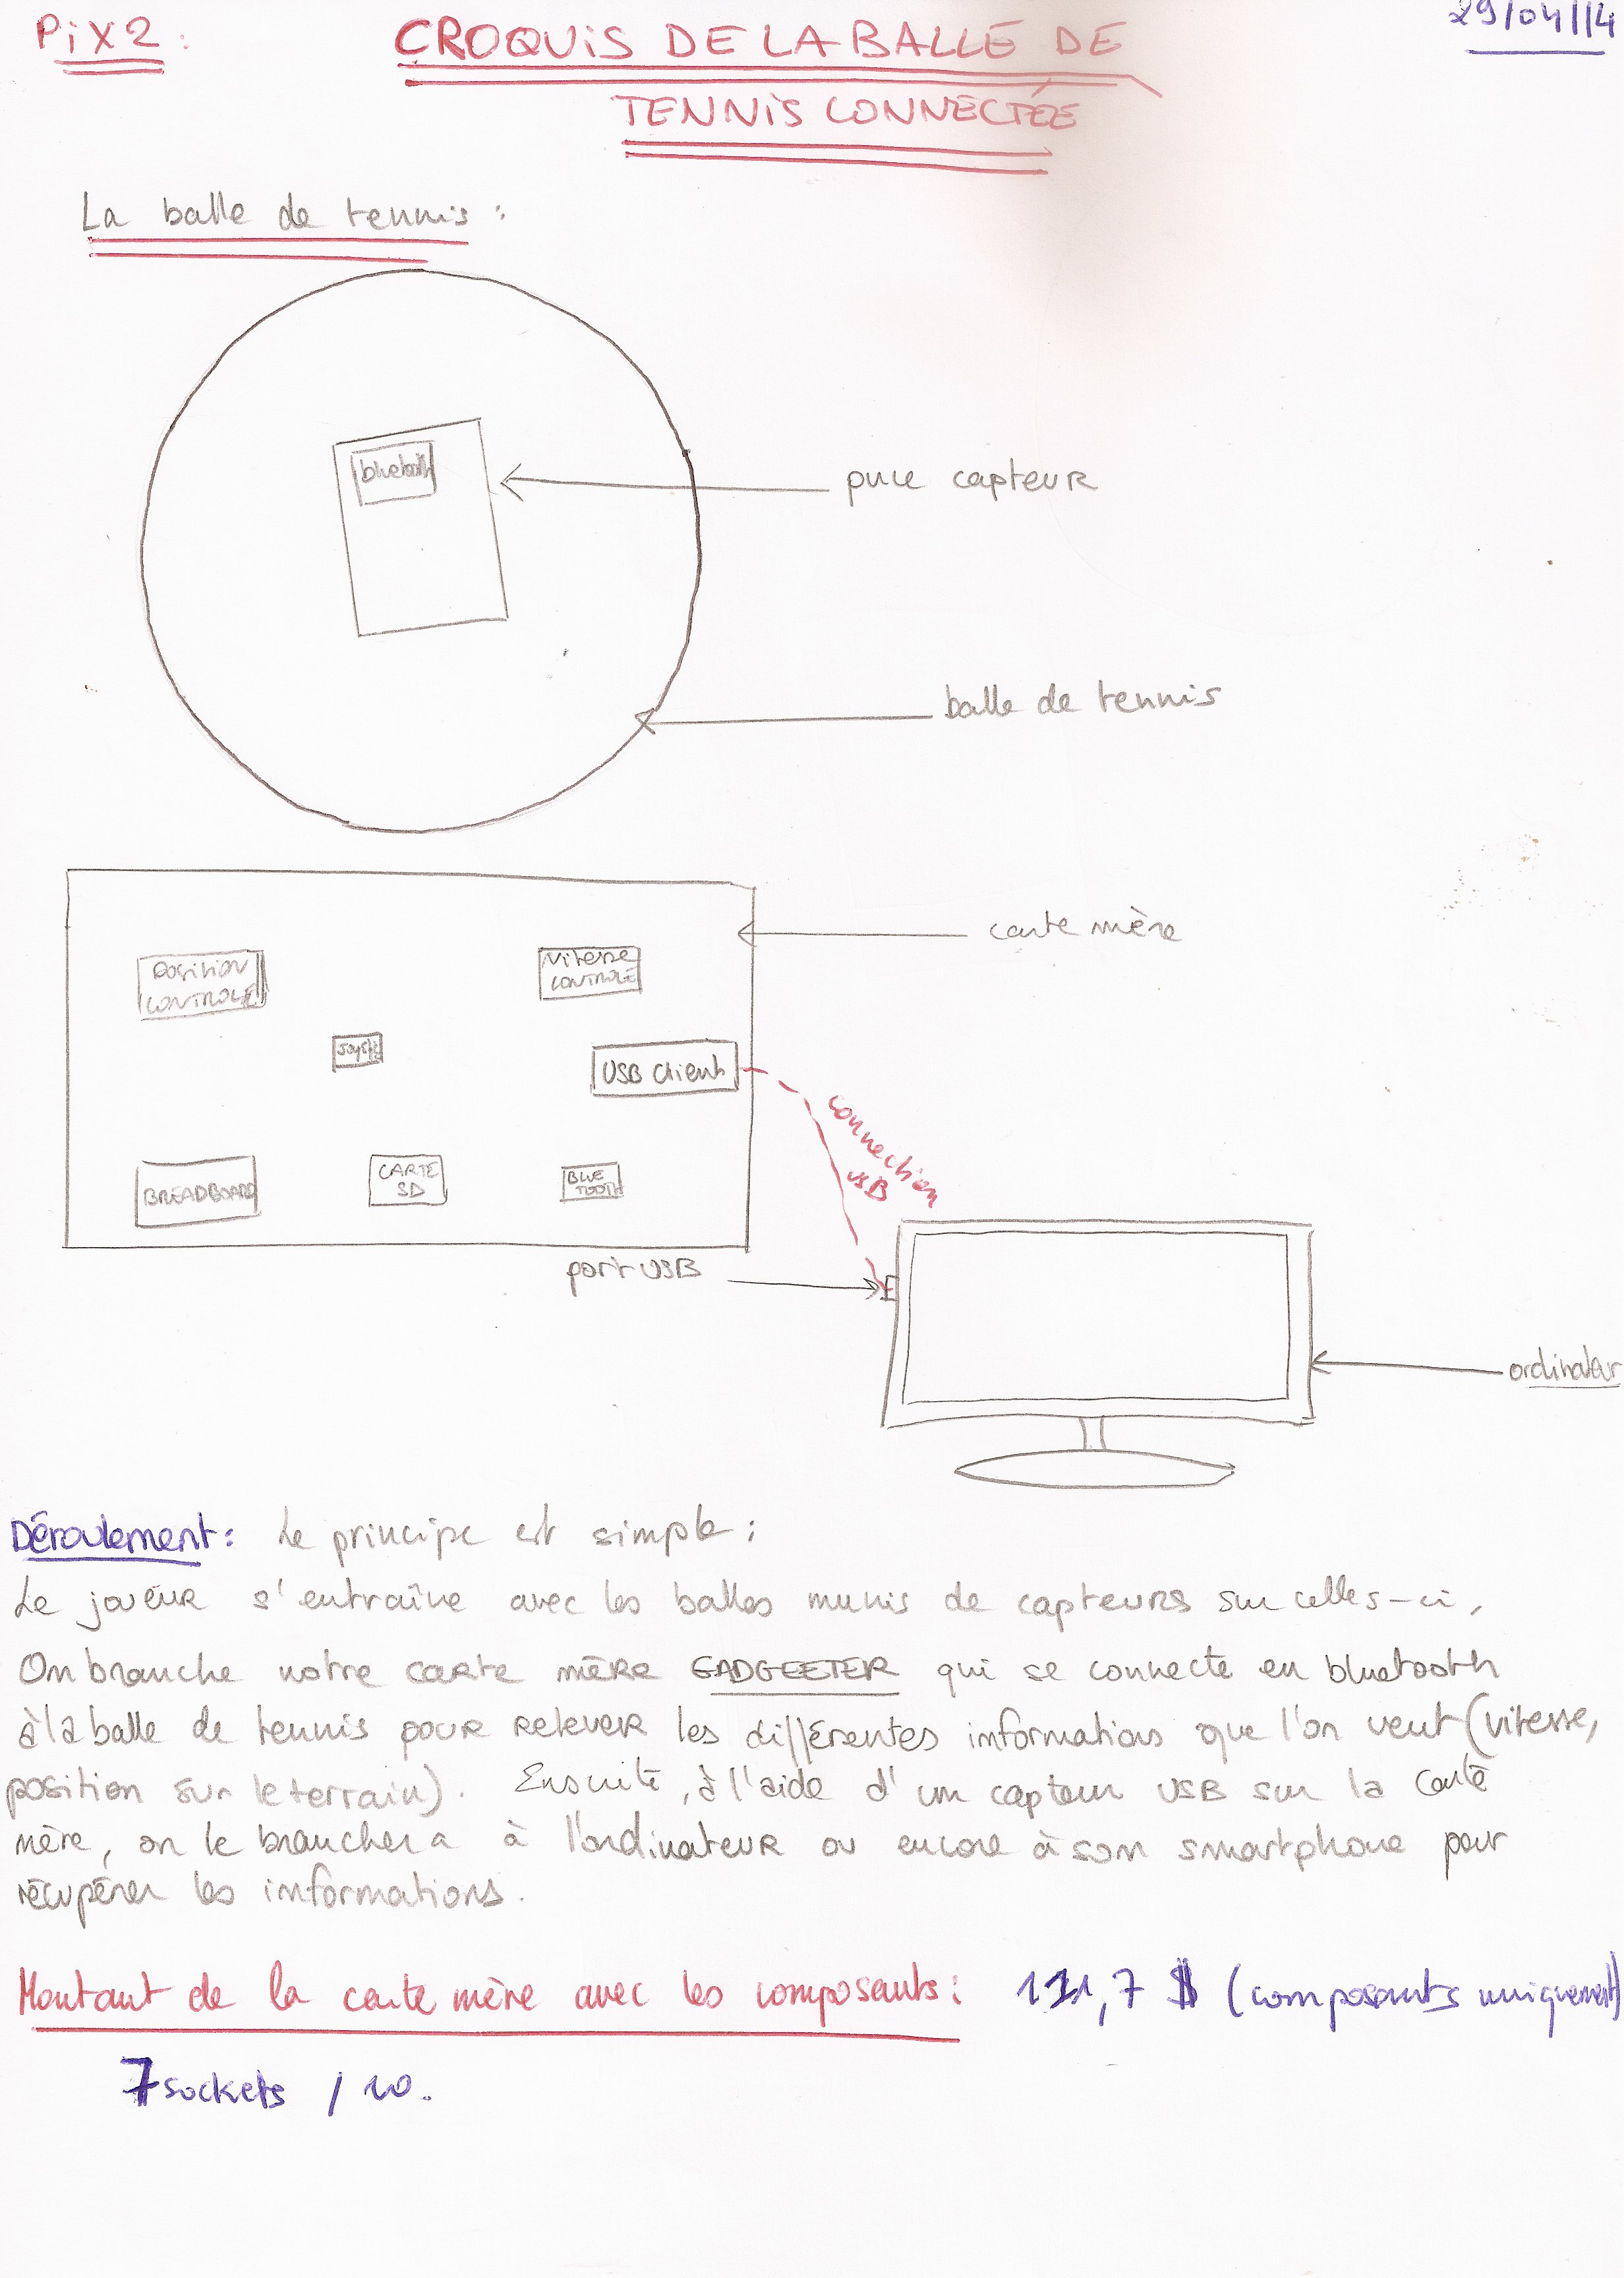 PiX2 :
CROQUiS DE LA BALLE DE
TENNiS CONNECTÉE
29/04/14
La balle de tennis :
bluetooth
puce capteur
balle de tennis
carte mère
POSITION
CONTROLE
Vitesse
CONTROLE
USB Client
connection
USB
BREADBOARD
CARTE
SD
BLUE
TOOTH
port USB
ordinateur
Déroulement : Le principe est simple :
Le joueur s'entraîne avec les balles munis de capteurs sur celles-ci,
On branche notre carte mère GADGEETER qui se connecte en bluetooth
à la balle de tennis pour relever les différentes informations que l'on veut (vitesse,
position sur le terrain). Ensuite, à l'aide d'un capteur USB sur la carte
mère, on le branchera à l'ordinateur ou encore à son smartphone pour
récupérer les informations.
Montant de la carte mère avec les composants : 131,7 $ (composants uniquement)
7 sockets / 10.